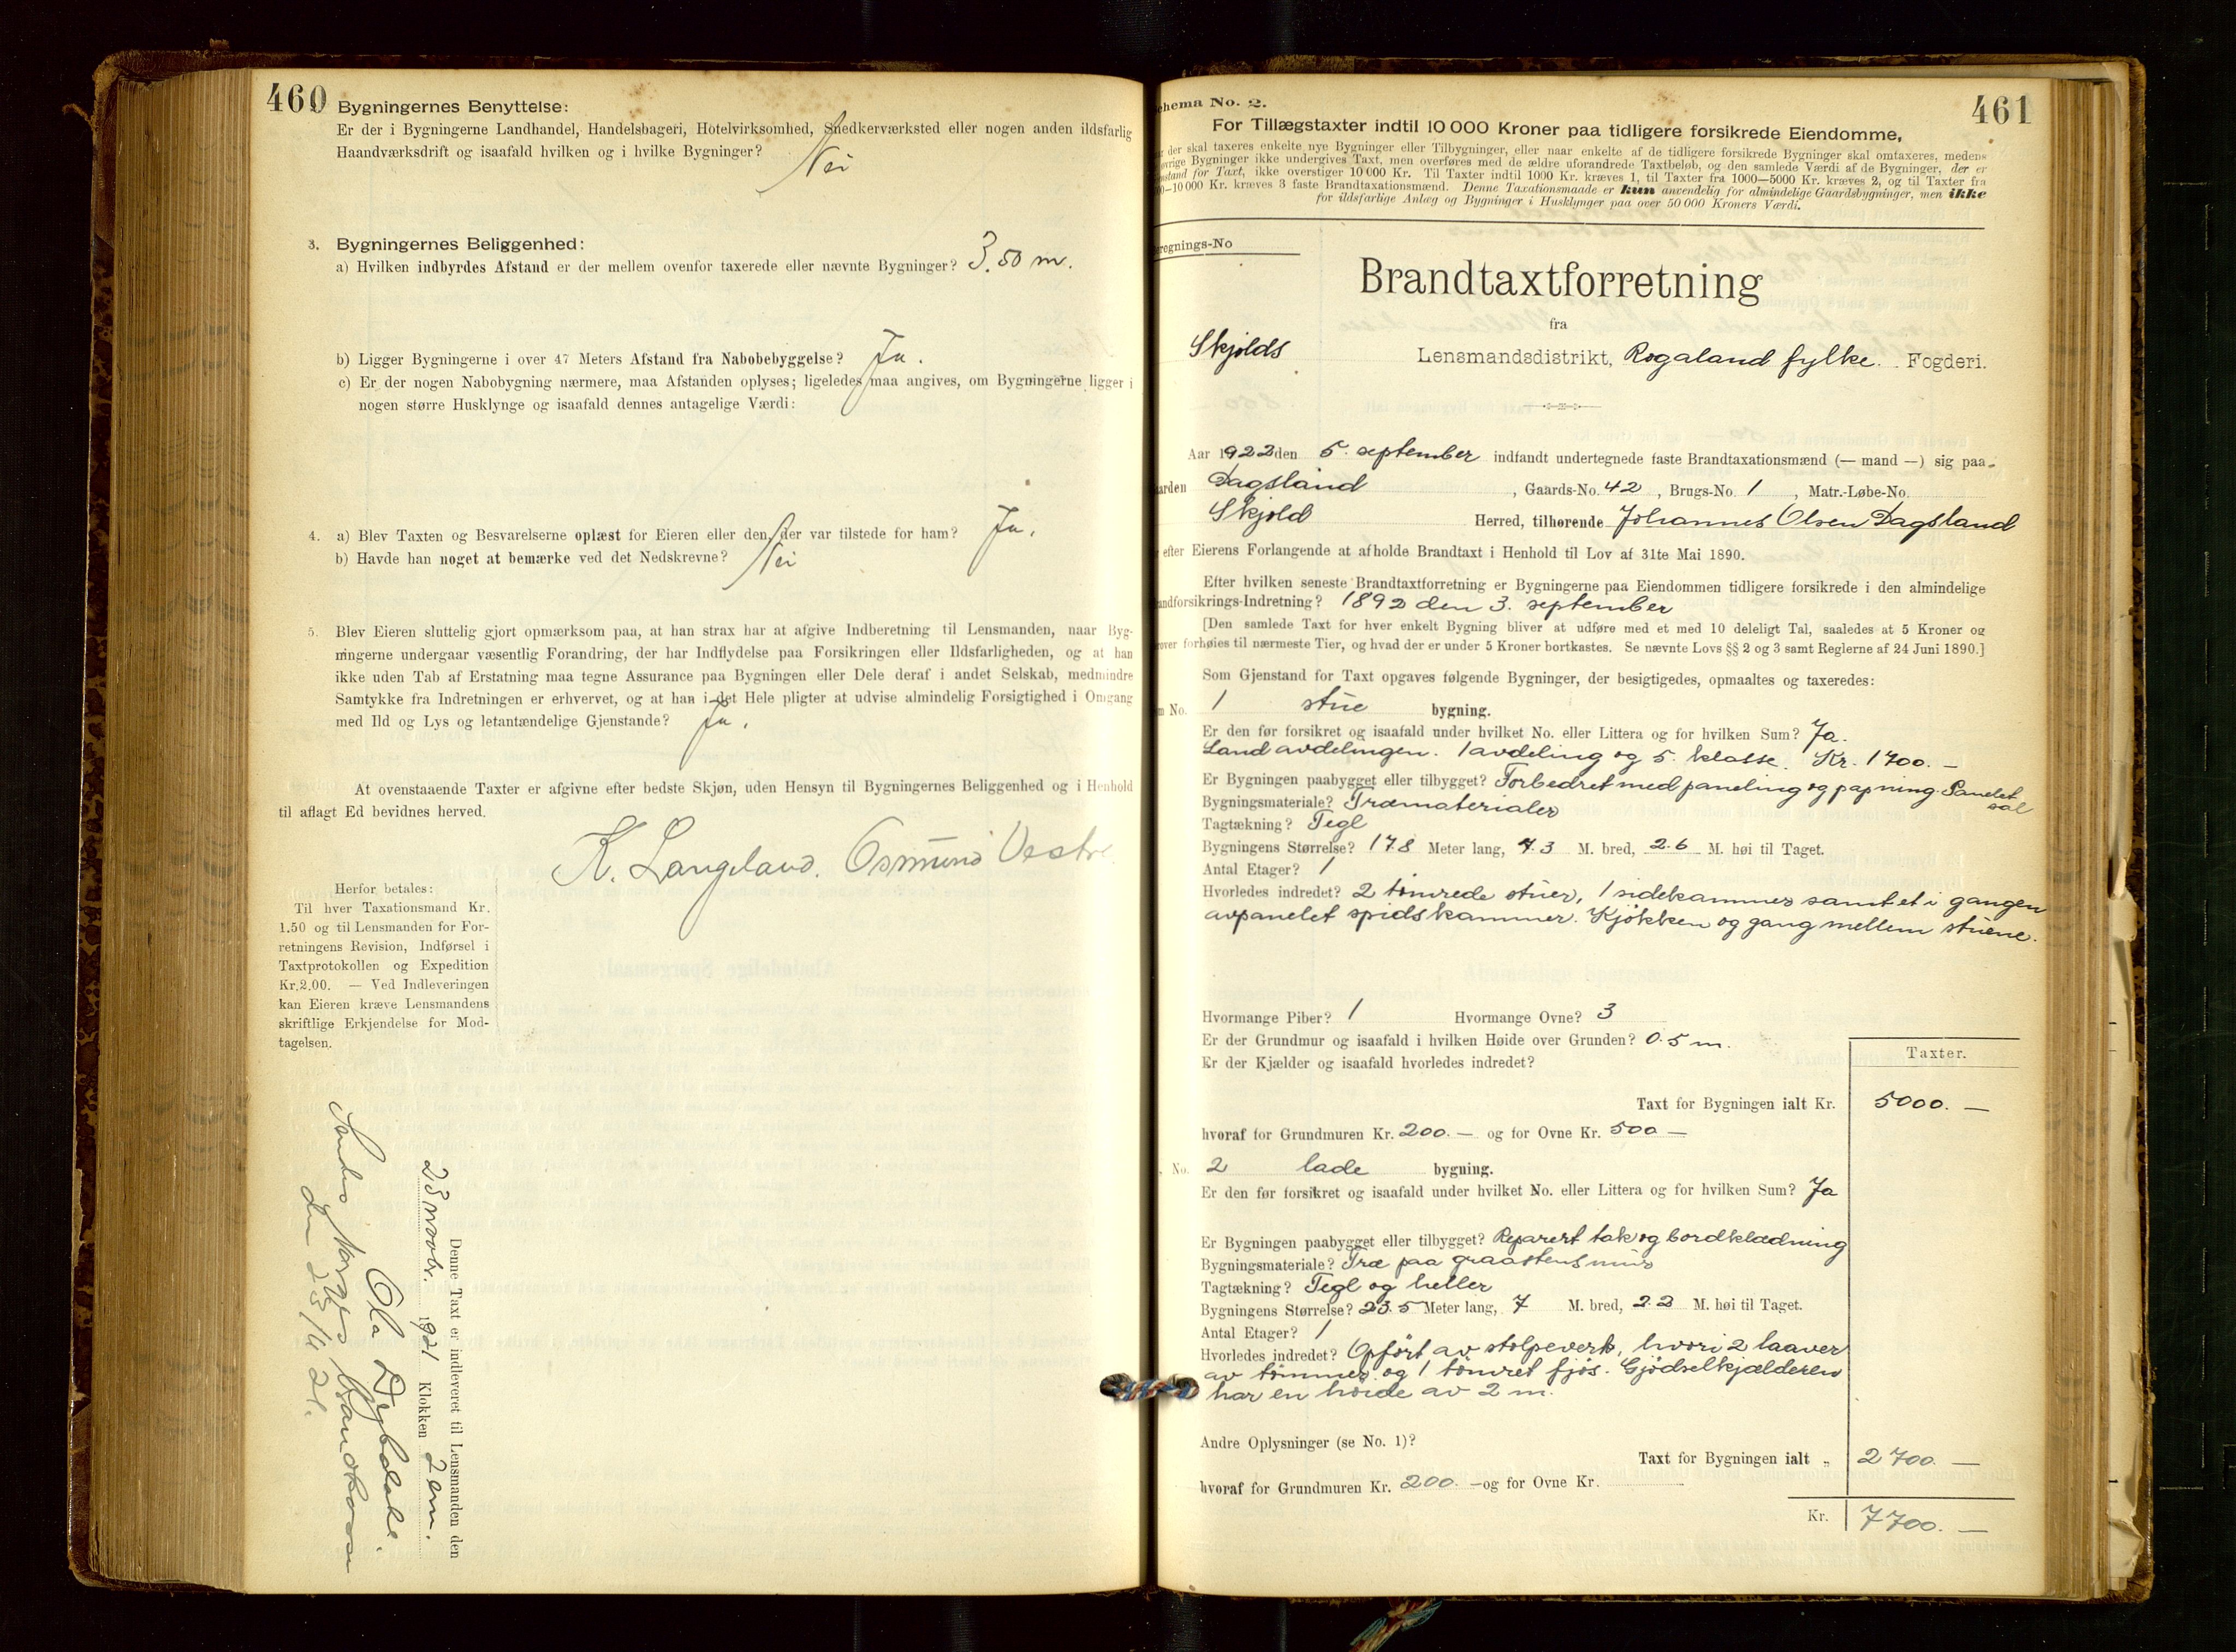 460
Bygningernes Benyttelse:
Er der i Bygningerne Landhandel, Handelsbageri, Hotelvirksomhed, Snedkerværksted eller nogen anden ildsfarlig
Haandværksdrift og isaafald hvilken og i hvilke Bygninger? Nei
3. Bygningernes Beliggenhed:
a) Hvilken indbyrdes Afstand er der mellem ovenfor taxerede eller nævnte Bygninger? 3,50 m.
b) Ligger Bygningerne i over 47 Meters Afstand fra Nabobebyggelse? Ja.
c) Er der nogen Nabobygning nærmere, maa Afstanden oplyses; ligeledes maa angives, om Bygningerne ligger i
nogen større Husklynge og isaafald dennes antagelige Værdi:
4. a) Blev Taxten og Besvarelserne oplæst for Eieren eller den, der var tilstede for ham? Ja.
b) Havde han noget at bemærke ved det Nedskrevne? Nei
5. Blev Eieren sluttelig gjort opmærksom paa, at han strax har at afgive Indberetning til Lensmanden, naar Byg-
ningerne undergaar væsentlig Forandring, der har Indflydelse paa Forsikringen eller Ildsfarligheden, og at han
ikke uden Tab af Erstatning maa tegne Assurance paa Bygningen eller Dele deraf i andet Selskab, medmindre
Samtykke fra Indretningen er erhvervet, og at han i det Hele pligter at udvise almindelig Forsigtighed i Omgang
med Ild og Lys og letantændelige Gjenstande? Ja.
At ovenstaaende Taxter er afgivne efter bedste Skjøn, uden Hensyn til Bygningernes Beliggenhed og i Henhold
til aflagt Ed bevidnes herved.
K. Langeland. Osmund Vestre
Herfor betales:
Til hver Taxationsmand Kr.
1.50 og til Lensmanden for For-
retningens Revision, Indførsel i
Taxtprotokollen og Expedition
Kr. 2.00. — Ved Indleveringen
kan Eieren kræve Lensmandens
skriftlige Erkjendelse for Mod-
tagelsen.
Denne Taxt er indleveret til Lensmanden den
25 novbr. 1921 Klokken 2 em.
Ola
Sendes Norges Brandkasse
den 25/11 21.
461
Schema No. 2.
For Tillægstaxter indtil 10 000 Kroner paa tidligere forsikrede Eiendomme,
der skal taxeres enkelte nye Bygninger eller Tilbygninger, eller naar enkelte af de tidligere forsikrede Bygninger skal omtaxeres, medens
øvrige Bygninger ikke undergives Taxt, men overføres med de ældre uforandrede Taxtbeløb, og den samlede Værdi af de Bygninger, der er
Gjenstand for Taxt, ikke overstiger 10 000 Kr. Til Taxter indtil 1000 Kr. kræves 1, til Taxter fra 1000—5000 Kr. kræves 2, og til Taxter fra
5000—10 000 Kr. kræves 3 faste Brandtaxationsmænd. Denne Taxationsmaade er kun anvendelig for almindelige Gaardsbygninger, men ikke
for ildsfarlige Anlæg og Bygninger i Husklynger paa over 50 000 Kroners Værdi.
Beregnings-No
Brandtaxtforretning
fra
Skjolds Lensmandsdistrikt, Rogaland fylke. Fogderi.
Aar 1922 den 5. september indfandt undertegnede faste Brandtaxationsmænd (— mand —) sig paa
Gaarden Dagsland, Gaards-No. 42, Brugs-No. 1, Matr.-Løbe-No.
Skjold Herred, tilhørende Johannes Olsen Dagsland
for efter Eierens Forlangende at afholde Brandtaxt i Henhold til Lov af 31te Mai 1890.
Efter hvilken seneste Brandtaxtforretning er Bygningerne paa Eiendommen tidligere forsikrede i den almindelige
Brandforsikrings-Indretning? 1892 den 3. september
[Den samlede Taxt for hver enkelt Bygning bliver at udføre med et med 10 deleligt Tal, saaledes at 5 Kroner og
derover forhøies til nærmeste Tier, og hvad der er under 5 Kroner bortkastes. Se nævnte Lovs §§ 2 og 3 samt Reglerne af 24 Juni 1890.]
Som Gjenstand for Taxt opgaves følgende Bygninger, der besigtigedes, opmaaltes og taxeredes:
No. 1 stue bygning.
Er den før forsikret og isaafald under hvilket No. eller Littera og for hvilken Sum? Ja.
Landavdelingen. 1 avdeling og 5. klasse. Kr. 1700.—
Er Bygningen paabygget eller tilbygget? Forbedret med paneling og papning. Panelet sal
Bygningsmateriale? Træmaterialer
Tagtækning? Tegl
Bygningens Størrelse? 17.8 Meter lang, 7.3 M. bred, 2.6 M. høi til Taget.
Antal Etager? 1
Hvorledes indredet? 2 tømrede stuer, 1 sidekammer samt et i gangen
avpanelet spidskammer. Kjøkken og gang mellem stuene.
Hvormange Piber? 1 Hvormange Ovne? 3
Er der Grundmur og isaafald i hvilken Høide over Grunden? 0.5 m.
Er der Kjælder og isaafald hvorledes indredet?
Taxter.
Taxt for Bygningen ialt Kr. 5000.—
hvoraf for Grundmuren Kr. 200.— og for Ovne Kr. 500—
No. 2 lade bygning.
Er den før forsikret og isaafald under hvilket No. eller Littera og for hvilken Sum? Ja
Er Bygningen paabygget eller tilbygget? Reparert tak og bordklædning
Bygningsmateriale? Træ paa graastensmur
Tagtækning? Tegl og heller
Bygningens Størrelse? 23.5 Meter lang, 7 M. bred, 2.2 M. høi til Taget.
Antal Etager? 1
Hvorledes indredet? Opført av stolpeverk, hvori 2 laaver
av tømmer og 1 tømret fjøs. Gjødselkjælderen
har en høide av 2 m.
Andre Oplysninger (se No. 1)?
Taxt for Bygningen ialt „ 2700.—
hvoraf for Grundmuren Kr. 200.— og for Ovne Kr.
Kr. 7700.—